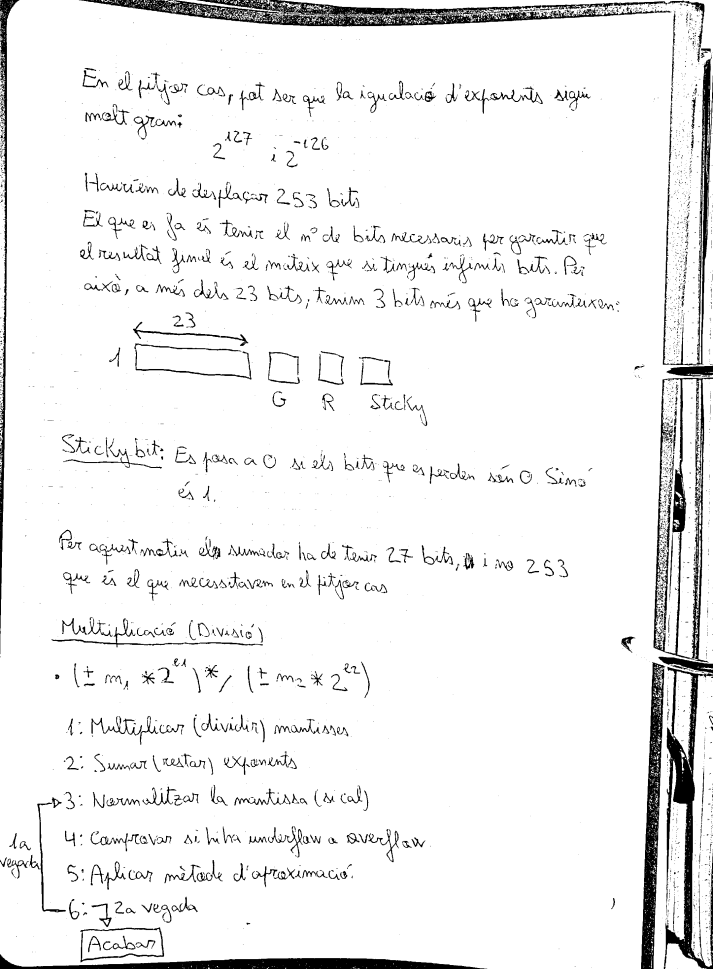 En el pitjor cas, pot ser que la igualació d'exponents sigui
molt gran:
2^127 i 2^-126
Hauríem de desplaçar 253 bits
El que es fa és tenir el nº de bits necessaris per garantir que
el resultat final és el mateix que si tingués infinits bits. Per
això, a més dels 23 bits, tenim 3 bits més que ho garanteixen:
23
1
G R Sticky
Sticky bit: Es posa a 0 si els bits que es perden són 0. Sinó
és 1.
Per aquest motiu el sumador ha de tenir 27 bits, i no 253
que és el que necessitavem en el pitjor cas
Multiplicació (Divisió)
• (± m1 * 2^e1) */ (± m2 * 2^e2)
1: Multiplicar (dividir) mantisses
2: Sumar (restar) exponents
3: Normalitzar la mantissa (si cal)
4: Comprovar si hi ha underflow o overflow
5: Aplicar mètode d'aproximació.
1a
vegada
6: 2a vegada
Acabar